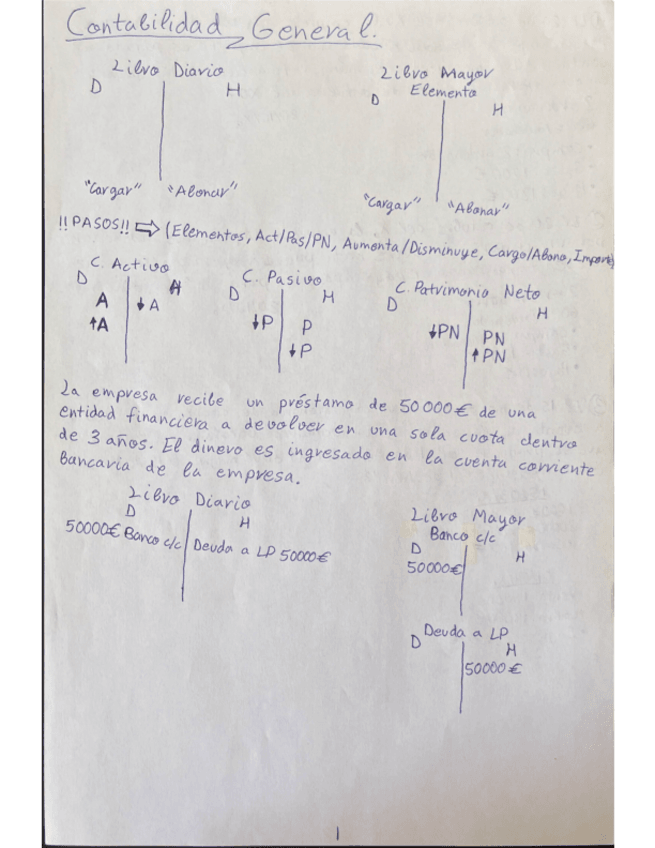 Contabilidad General.
Libro Diario
D H
"Cargar" "Abonar"
Libro Mayor
Elemento
D H
"Cargar" "Abonar"
!!PASOS!! ⇨ (Elementos, Act/Pas/PN, Aumenta/Disminuye, Cargo/Abono, Importe)
C. Activo
D H
A ↓A
↑A
C. Pasivo
D H
↓P P
↓P
C. Patrimonio Neto
D H
↓PN PN
↑PN
La empresa recibe un préstamo de 50000€ de una
entidad financiera a devolver en una sola cuota dentro
de 3 años. El dinero es ingresado en la cuenta corriente
Bancaria de la empresa.
Libro Diario
D H
50000€ Banco c/c Deuda a LP 50000€
Libro Mayor
Banco c/c
D H
50000€
Deuda a LP
D H
50000€
1